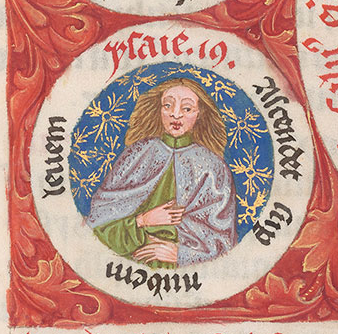 ysaie. 19.
Ascendet sup nubem leuem